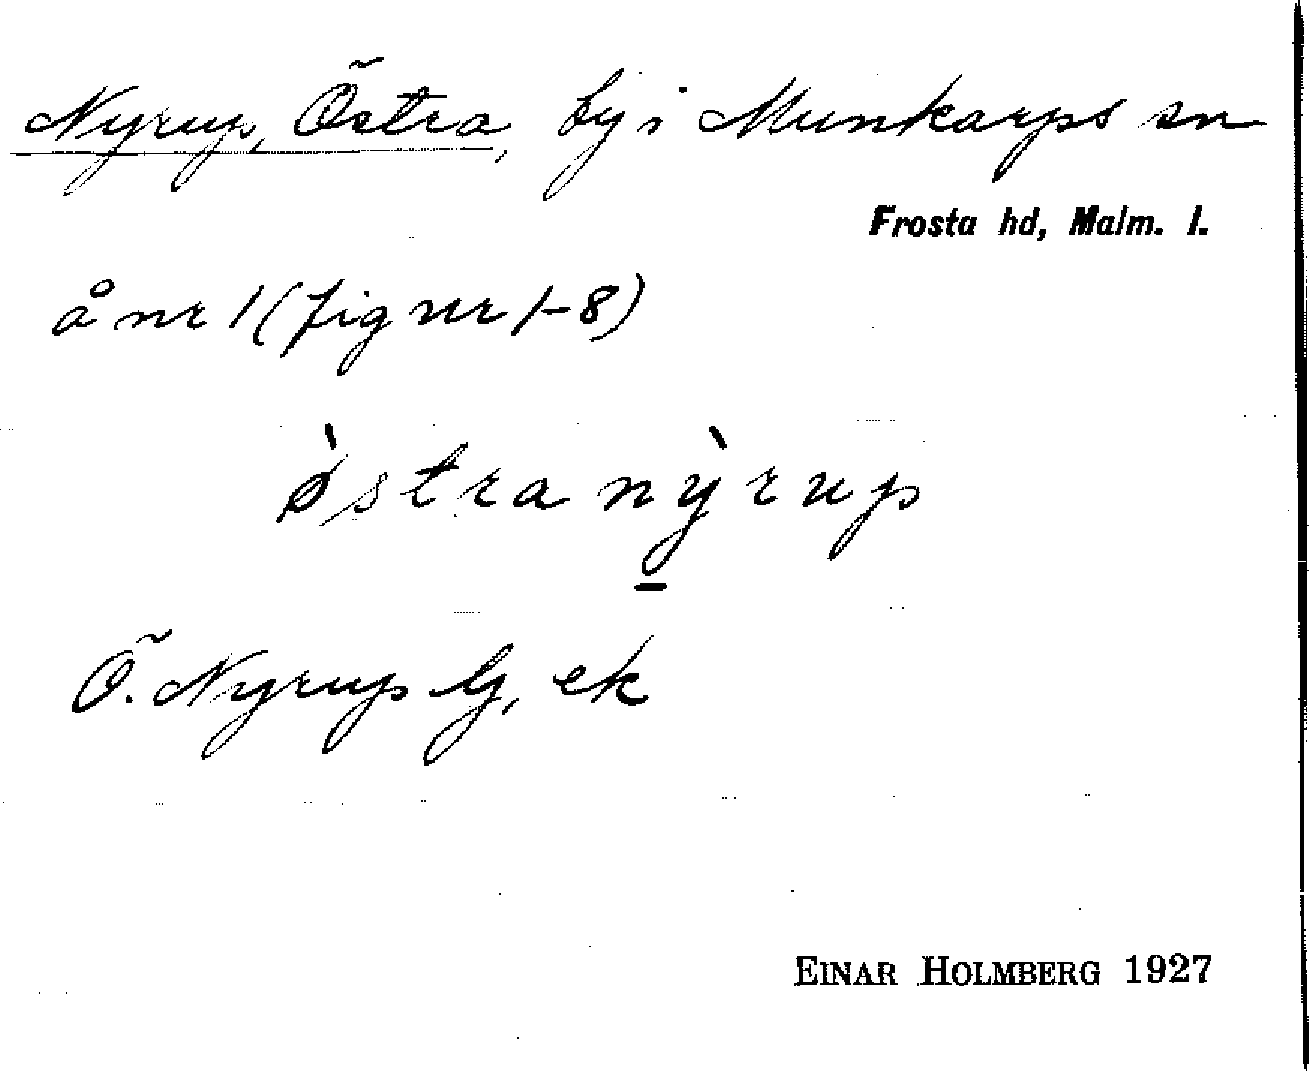 Nyrup, Östra, by i Munkarps sn
Frosta hd, Malm. l.
å nr 1 (fig nr 1-8)
ø̀stra nỳ̠rup
Ö. Nyrup by, ek
EINAR HOLMBERG 1927